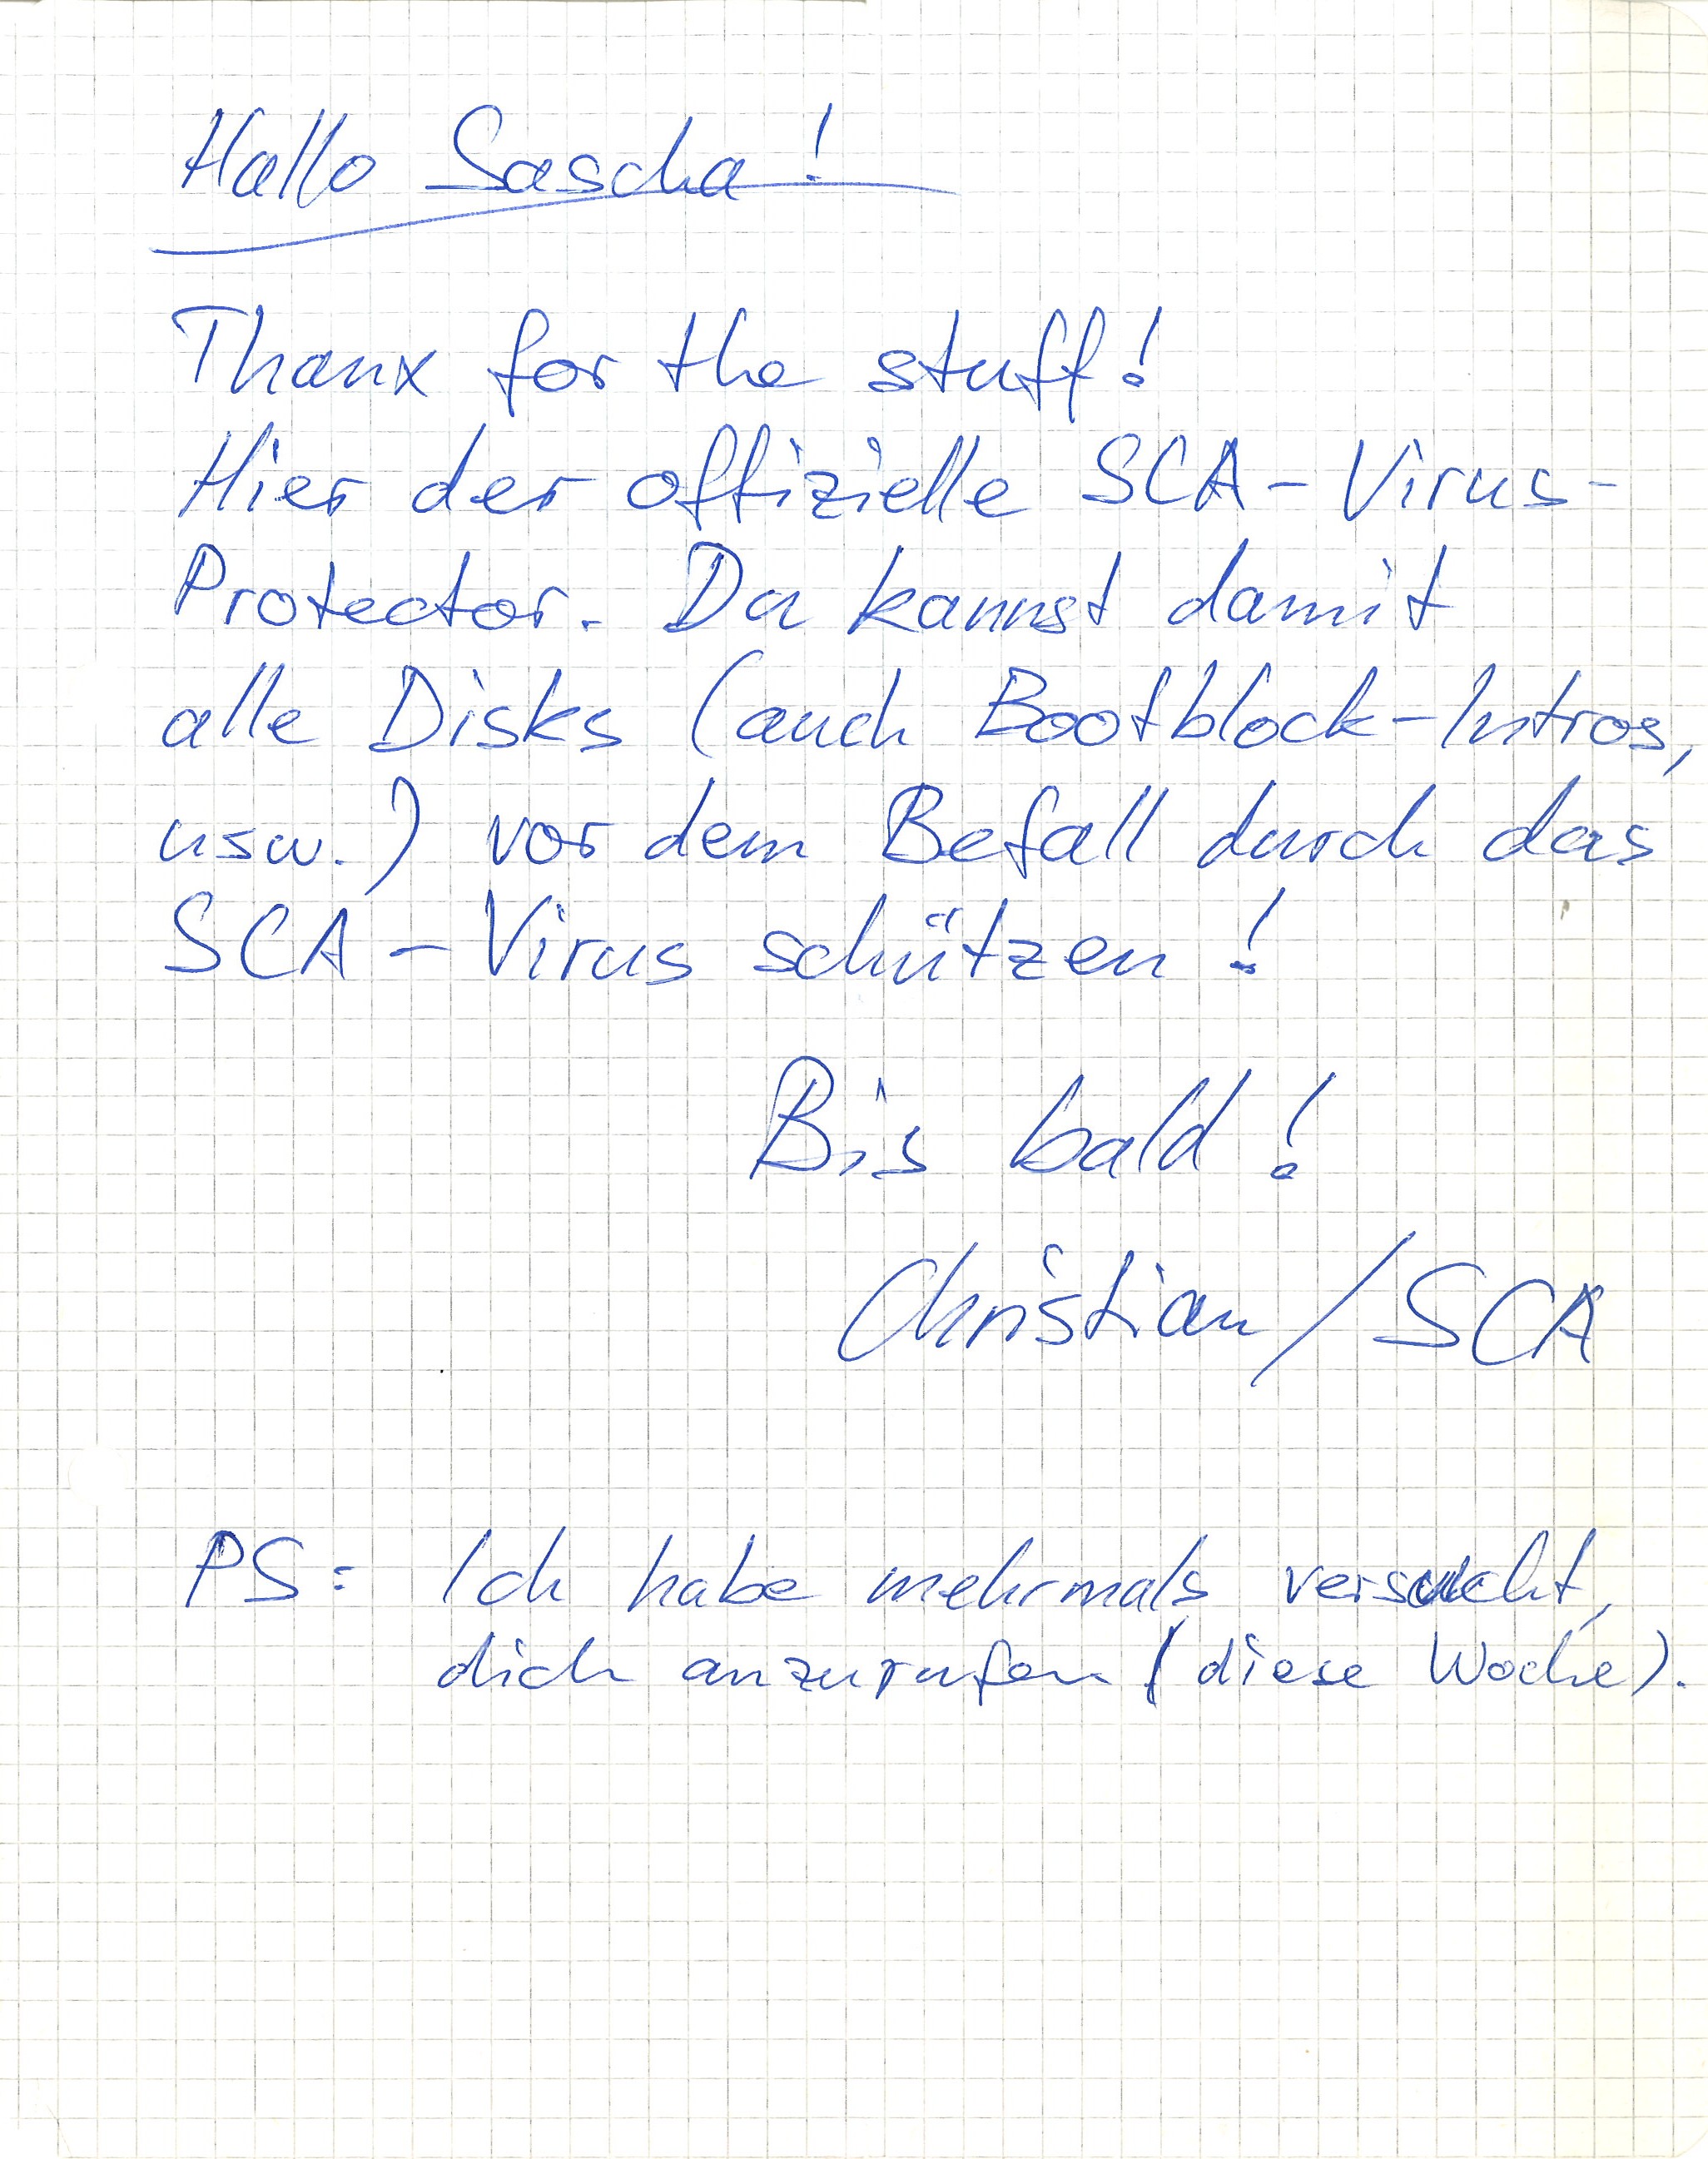 Hallo Sascha!
Thanx for the stuff!
Hier der offizielle SCA-Virus-
Protector. Du kannst damit
alle Disks (auch Bootblock-Intros,
usw.) vor dem Befall durch das
SCA-Virus schützen!
Bis bald!
Christian/SCA
PS: Ich habe mehrmals versucht,
dich anzurufen (diese Woche).